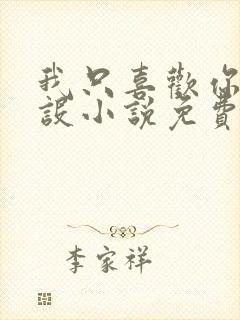 我只喜歡你
設小說免費
李家祥